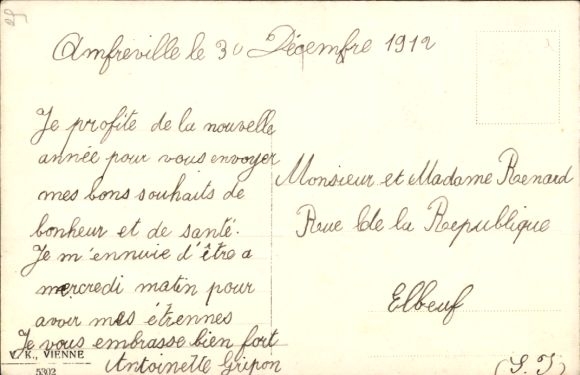 Amfreville le 30 Décemfre 1912
Je profite de la nouvelle
année pour vous envoyer
mes bons souhaits de
bonheur et de santé.
Je m'ennuie d'être a
mercredi matin pour
avoir mes étrennes
Je vous embrasse bien fort
Antoinette Gripon
Monsieur et Madame Renard
Rue de la Republique
Elbeuf
(S. I)
V. K., VIENNE
5302